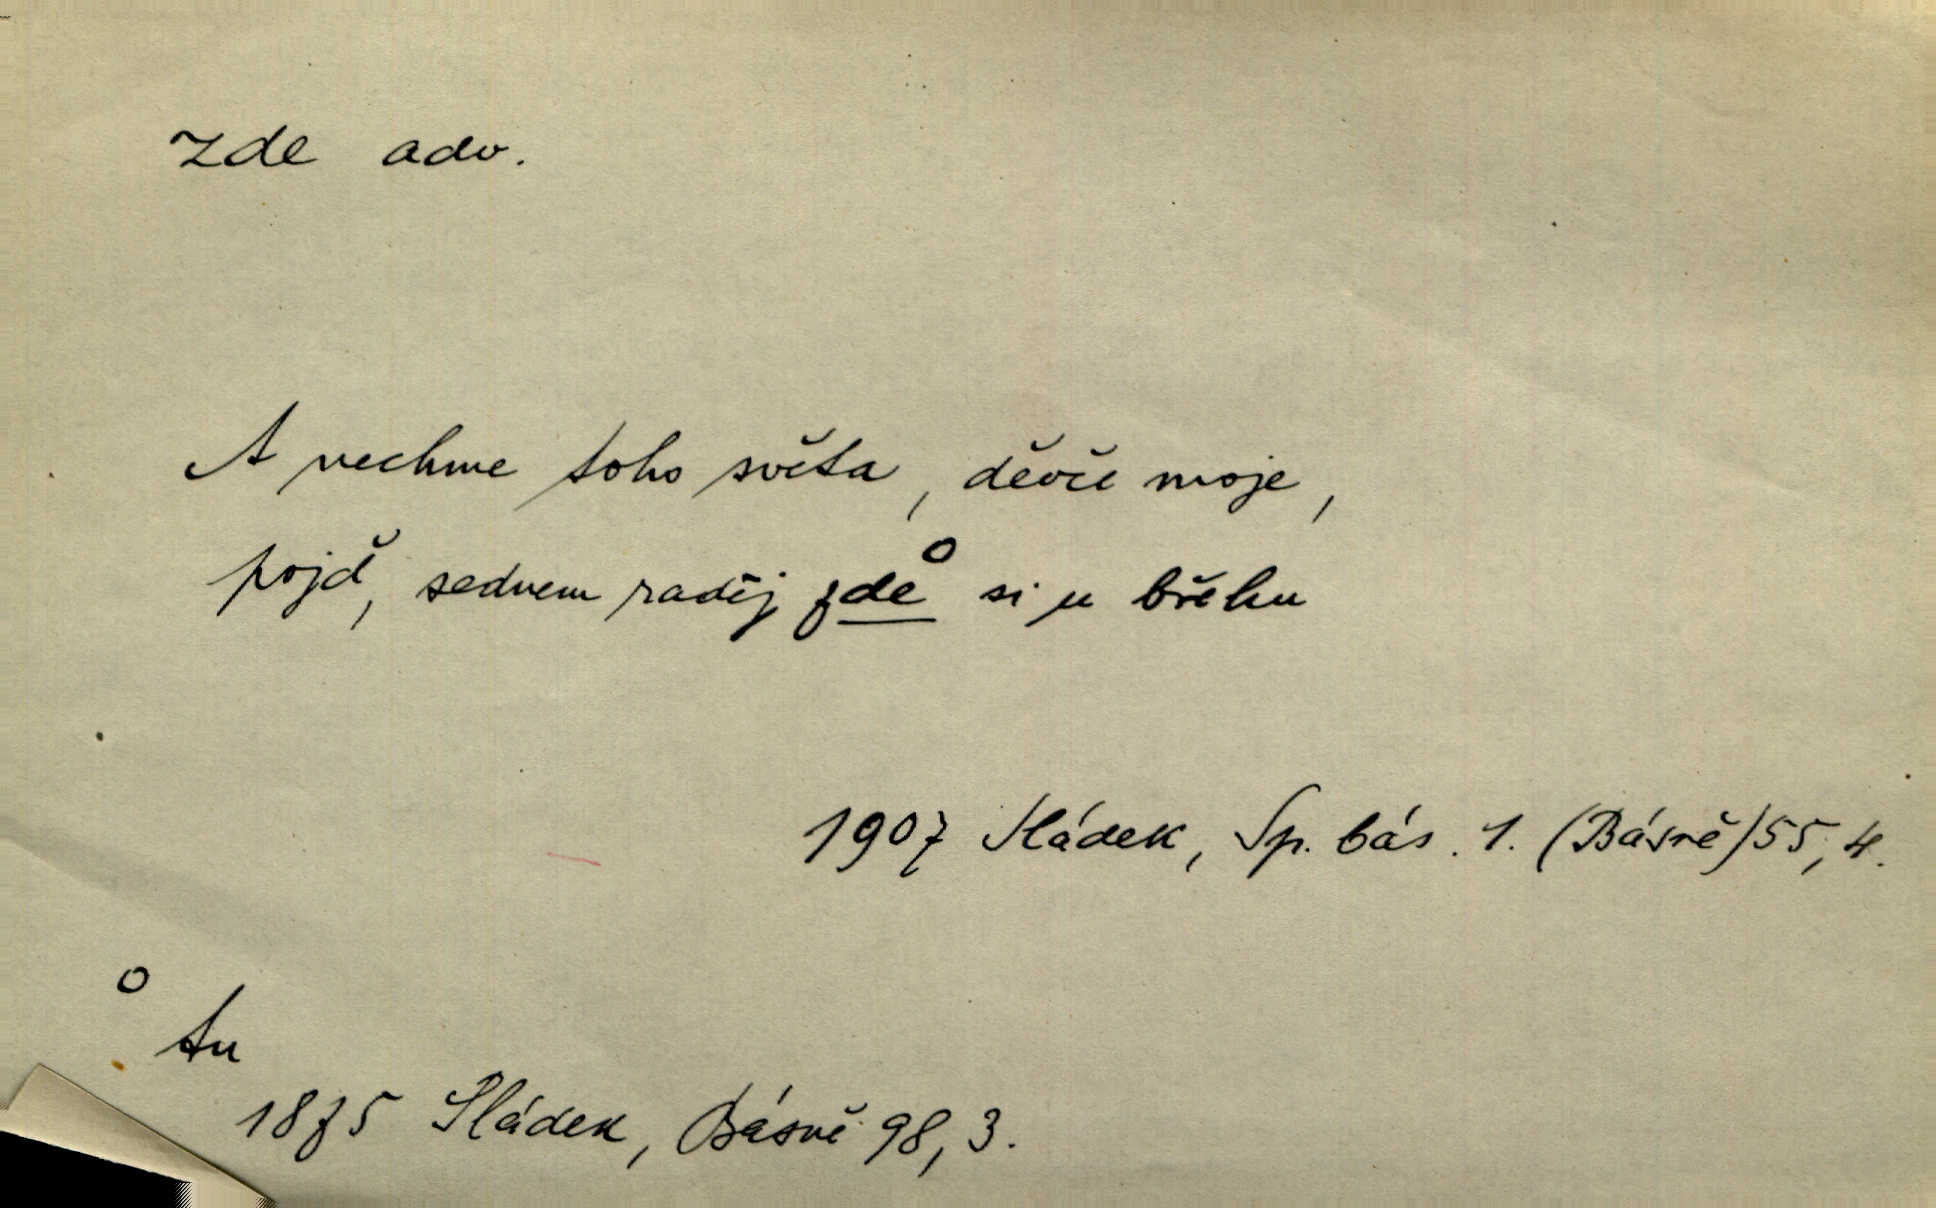 zde adv.
A nechme toho světa, děvče moje,
pojď, sednem raděj zde° si u břehu
1907 Sládek, Sp. bás. 1. (Básně) 55, 4.
° tu
1875 Sládek, Básně 98, 3.